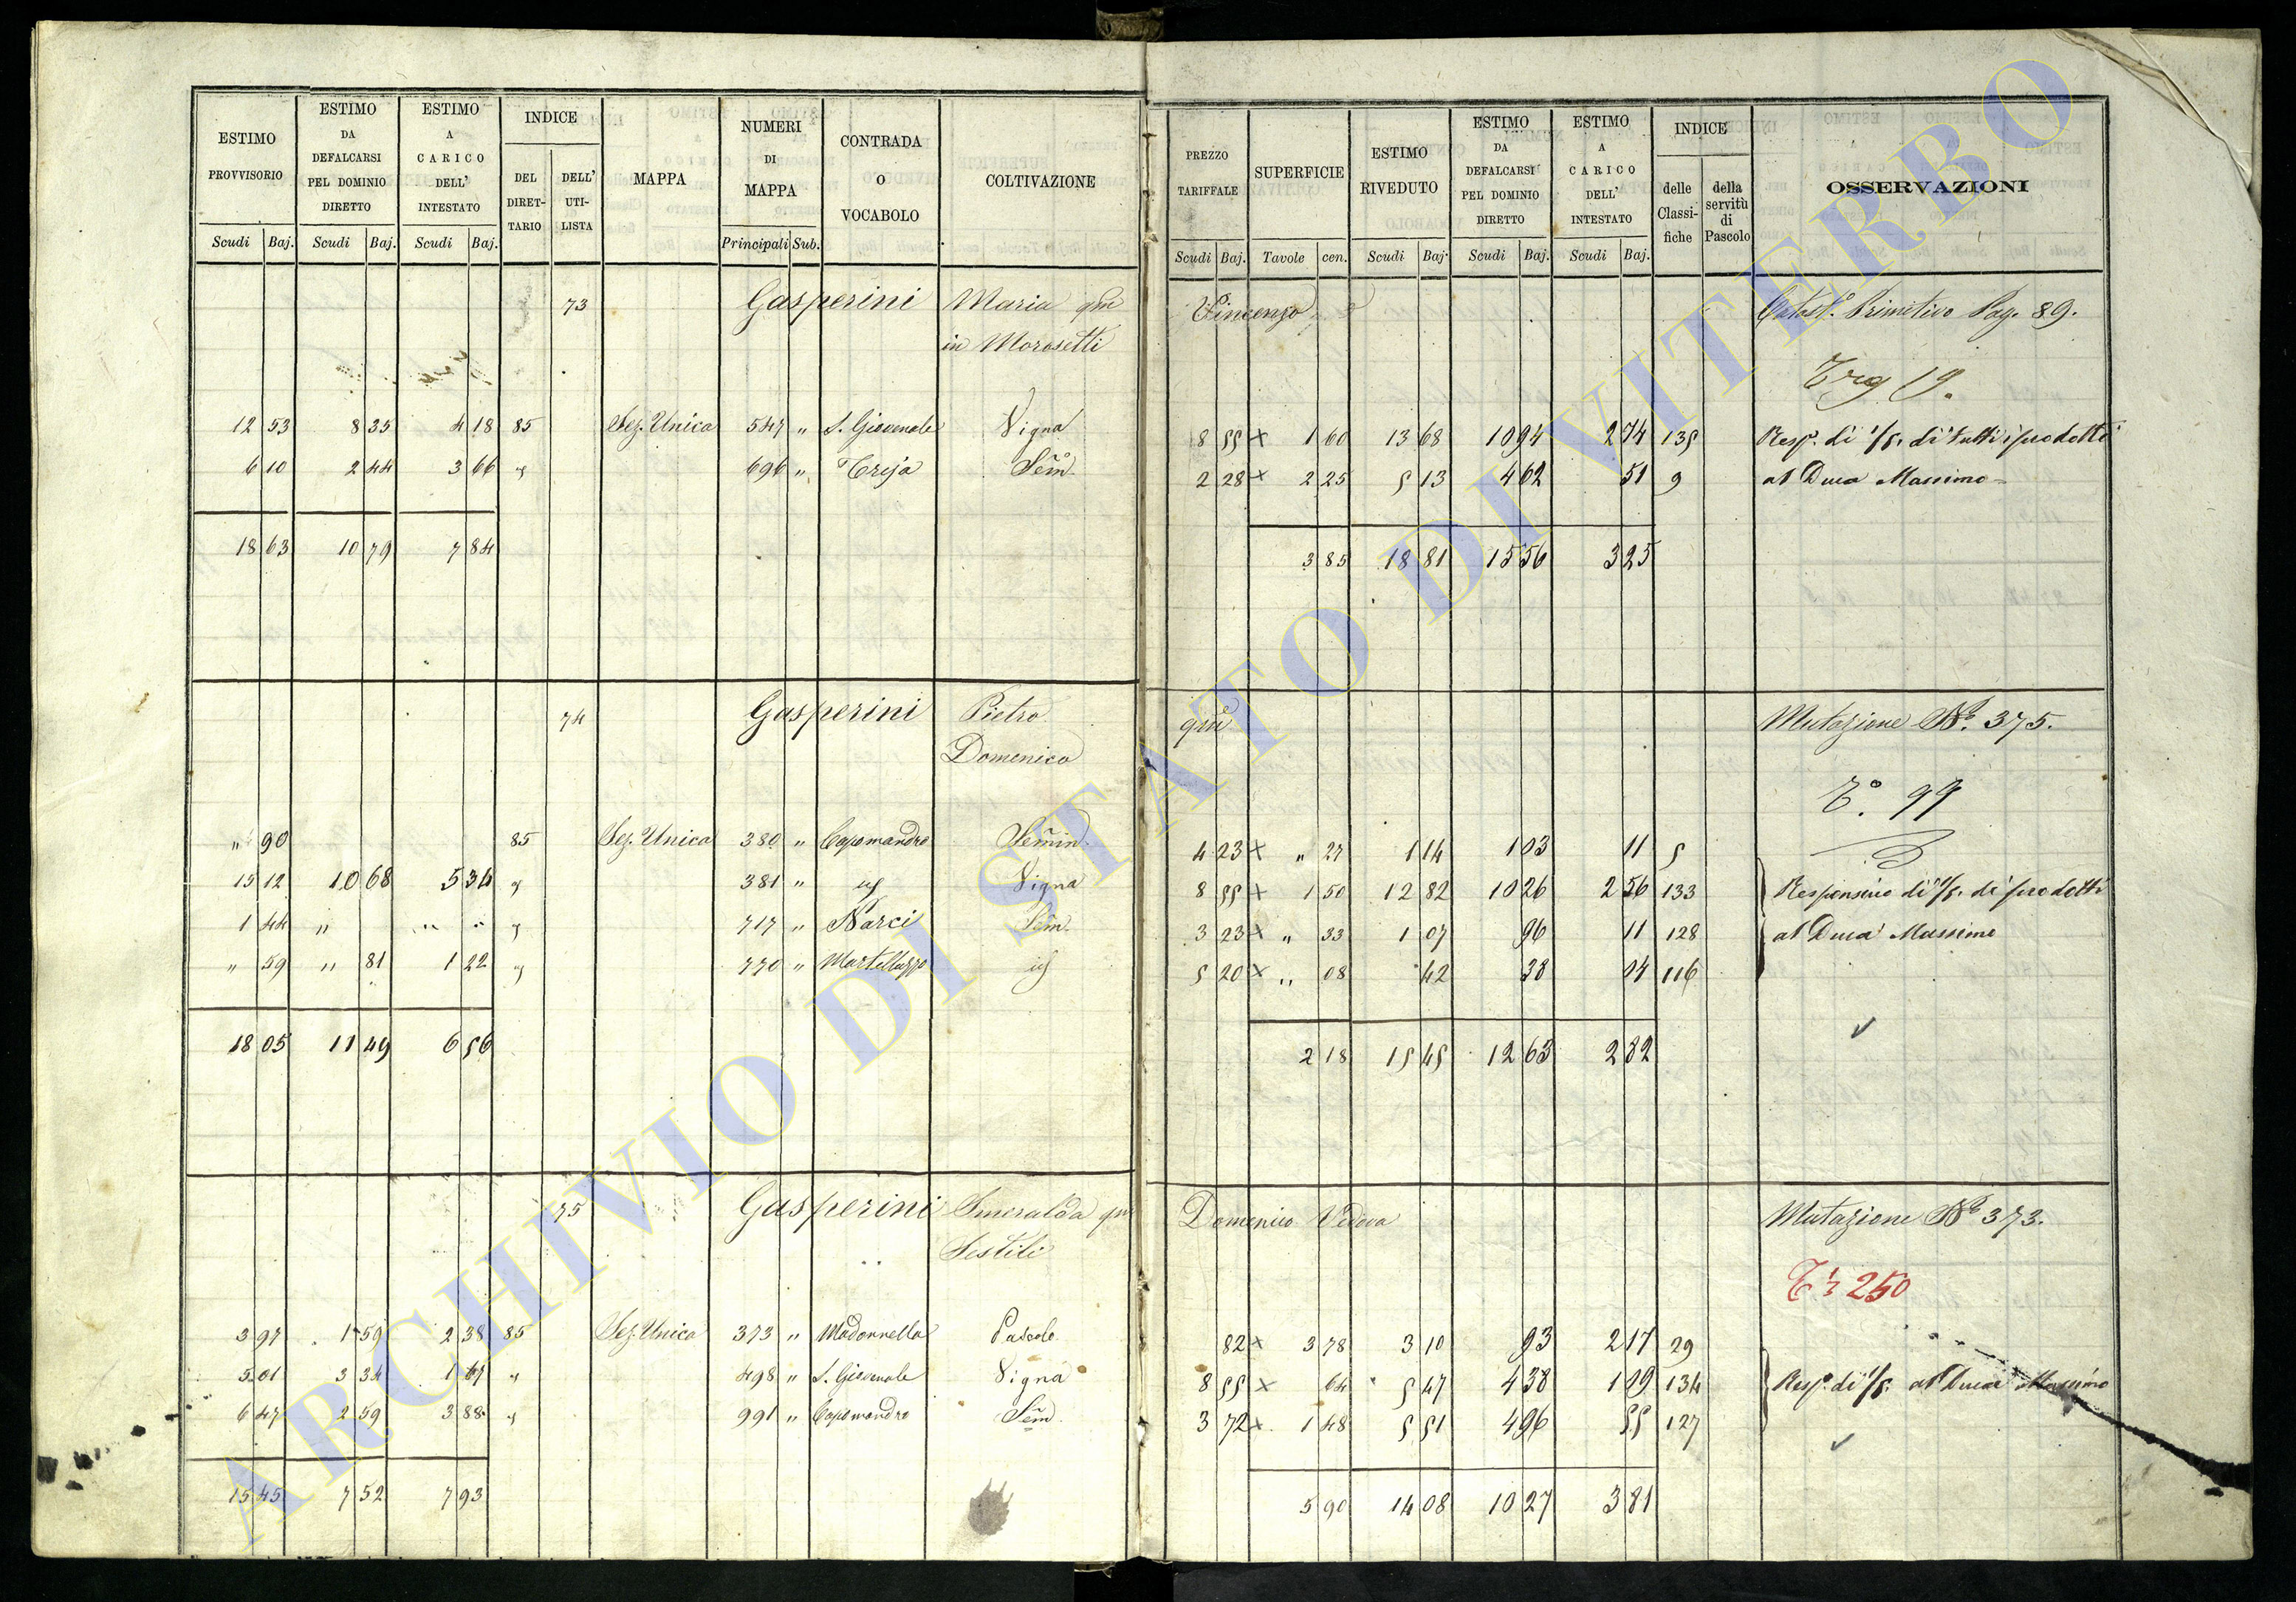 ESTIMO PROVVISORIO | ESTIMO DA DEFALCARSI PEL DOMINIO DIRETTO | ESTIMO A CARICO DELL' INTESTATO | INDICE | MAPPA | NUMERI DI MAPPA | CONTRADA O VOCABOLO | COLTIVAZIONE | PREZZO TARIFFALE | SUPERFICIE | ESTIMO RIVEDUTO | ESTIMO DA DEFALCARSI PEL DOMINIO DIRETTO | ESTIMO A CARICO DELL' INTESTATO | INDICE | OSSERVAZIONI
DEL DIRETTARIO | DELL' UTILISTA | delle Classifiche | della servitù di Pascolo
Scudi | Baj. | Scudi | Baj. | Scudi | Baj. | Principali | Sub. | Scudi | Baj. | Tavole | cen. | Scudi | Baj. | Scudi | Baj. | Scudi | Baj.
73 Gasperini Maria qm Vincenzo Catast.º Primitivo Pag. 89.
in Morosetti
Trg 19.
12 53 | 8 35 | 4 18 | 85 | Sez. Unica | 547 | " | S. Giovenale | Vigna | 8 55 × | 1 60 | 13 68 | 10 94 | 2 74 | 135 | Resp. di 1/5. di tutti i prodotti
6 10 | 2 44 | 3 66 | " | 696 | " | Treja | Sem. | 2 28 × | 2 25 | 5 13 | 4 62 | 51 | 9 | al Duca Massimo
18 63 | 10 79 | 7 84 | 3 85 | 18 81 | 15 56 | 3 25
74 Gasperini Pietro qm Mutazione Nº. 375.
Domenico
Tº. 99
" 90 | 85 | Sez. Unica | 380 | " | Capomandro | Semin. | 4 23 × | " 27 | 1 14 | 1 03 | 11 | 5
15 12 | 10 68 | 5 34 | " | 381 | " | id | Vigna | 8 55 × | 1 50 | 12 82 | 10 26 | 2 56 | 133 | Responsivo di 1/5. di prodotti
1 44 | " | " " | " | 717 | " | Narci | Sem. | 3 23 × | " 33 | 1 07 | 96 | 11 | 128 | al Duca Massimo
" 59 | " 81 | 1 22 | " | 770 | " | Martelluzzo | id | 5 20 × | " 08 | 42 | 38 | 04 | 116
18 05 | 11 49 | 6 56 | 2 18 | 15 45 | 12 63 | 2 82
75 Gasperini Smeralda qm Domenico Vedova Mutazione Nº 373.
Sestili
250
3 97 | 1 59 | 2 38 | 85 | Sez. Unica | 373 | " | Madonnella | Pascolo | 82 × | 3 78 | 3 10 | 93 | 2 17 | 29
5 01 | 3 34 | 1 67 | " | 498 | " | S. Giovenale | Vigna | 8 55 × | 64 | 5 47 | 4 38 | 1 09 | 134 | Resp. di 1/5. al Duca Massimo
6 47 | 2 59 | 3 88 | " | 991 | " | Capomandro | Sem. | 3 72 × | 1 48 | 5 51 | 4 96 | 55 | 127
15 45 | 7 52 | 7 93 | 5 90 | 14 08 | 10 27 | 3 81
ARCHIVIO DI STATO DI VITERBO